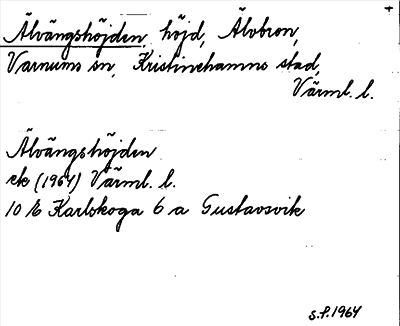 Älvängshöjden, höjd, Älvbron,
Varnums sn, Kristinehamns stad,
Värml. l.
Älvängshöjden
ek (1964) Värml. l.
10 E Karlskoga 6 a Gustavsvik
S.P. 1964